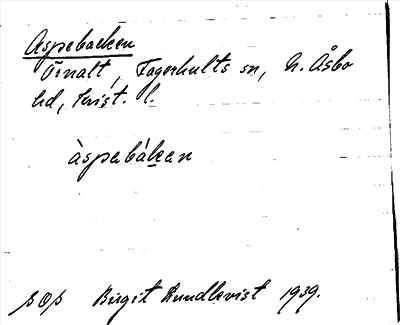 Aspebacken
Örnalt, Fagerhults sn, N. Åsbo
hd, Krist. l.
àspebákan
Birgit Lundkvist 1939.